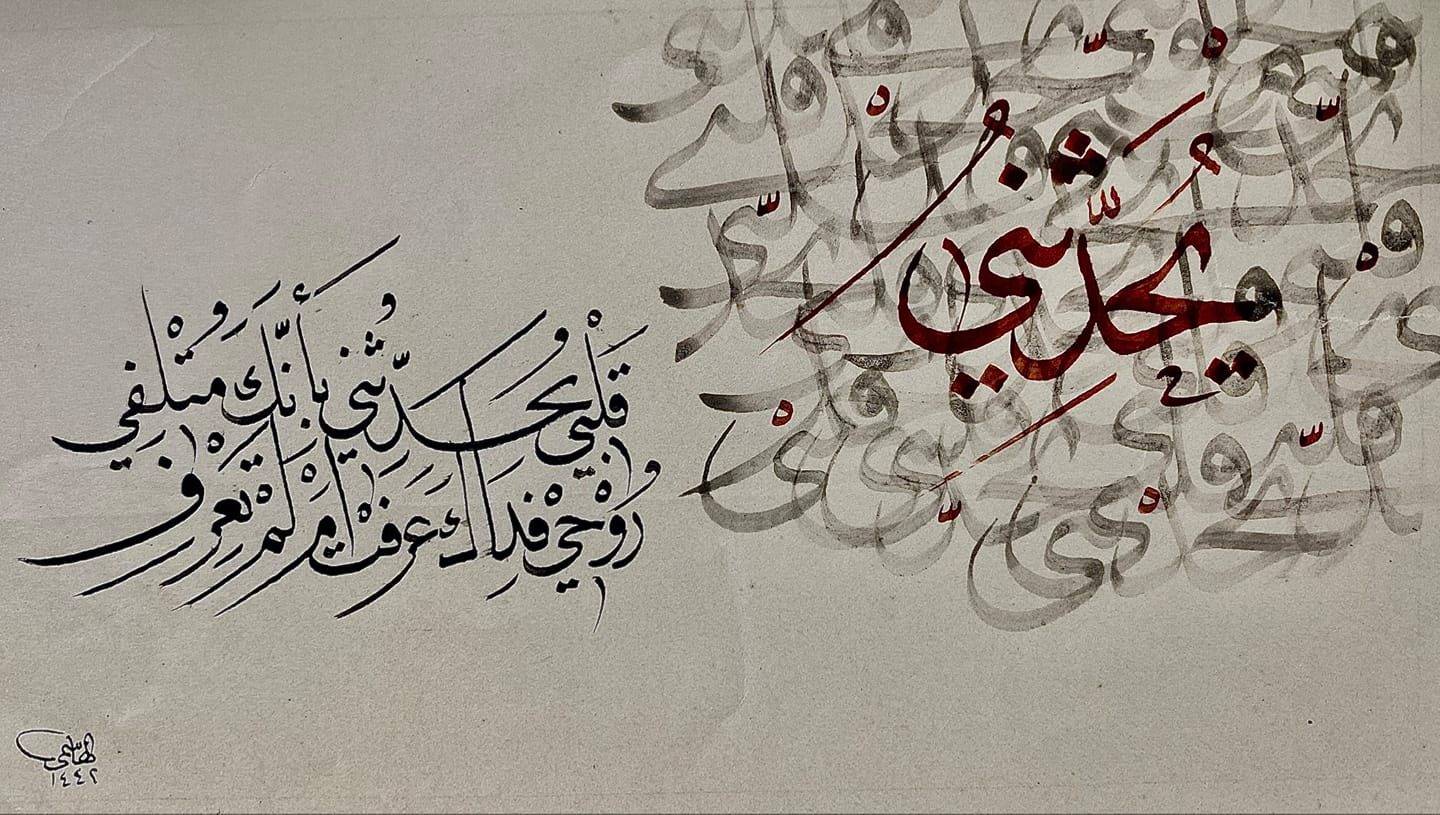 يُحَدِّثُنِي
قَلْبِي يُحَدِّثُنِي بِأَنَّكَ مُتْلِفِي
رُوْحِي فِدَاكَ عَرَفْتَ أَمْ لَمْ تَعْرِفِ
الهاشمي
١٤٤٢